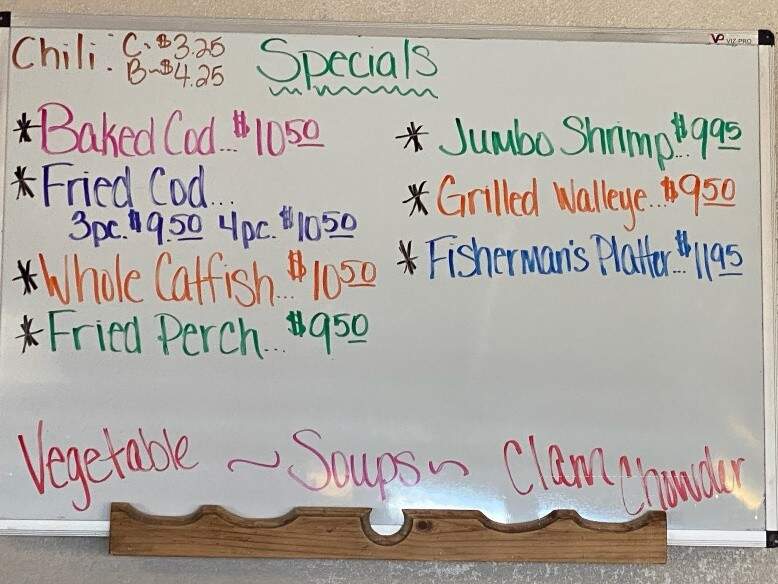 Chili: C~$3.25
B~$4.25
Specials
VIZ-PRO
*Baked Cod...$10.50
*Fried Cod...
3pc. $9.50 4pc. $10.50
*Whole Catfish...$10.50
*Fried Perch...$9.50
* Jumbo Shrimp...$9.95
* Grilled Walleye...$9.50
* Fisherman's Platter...$11.95
Vegetable ~ Soups ~ Clam Chowder